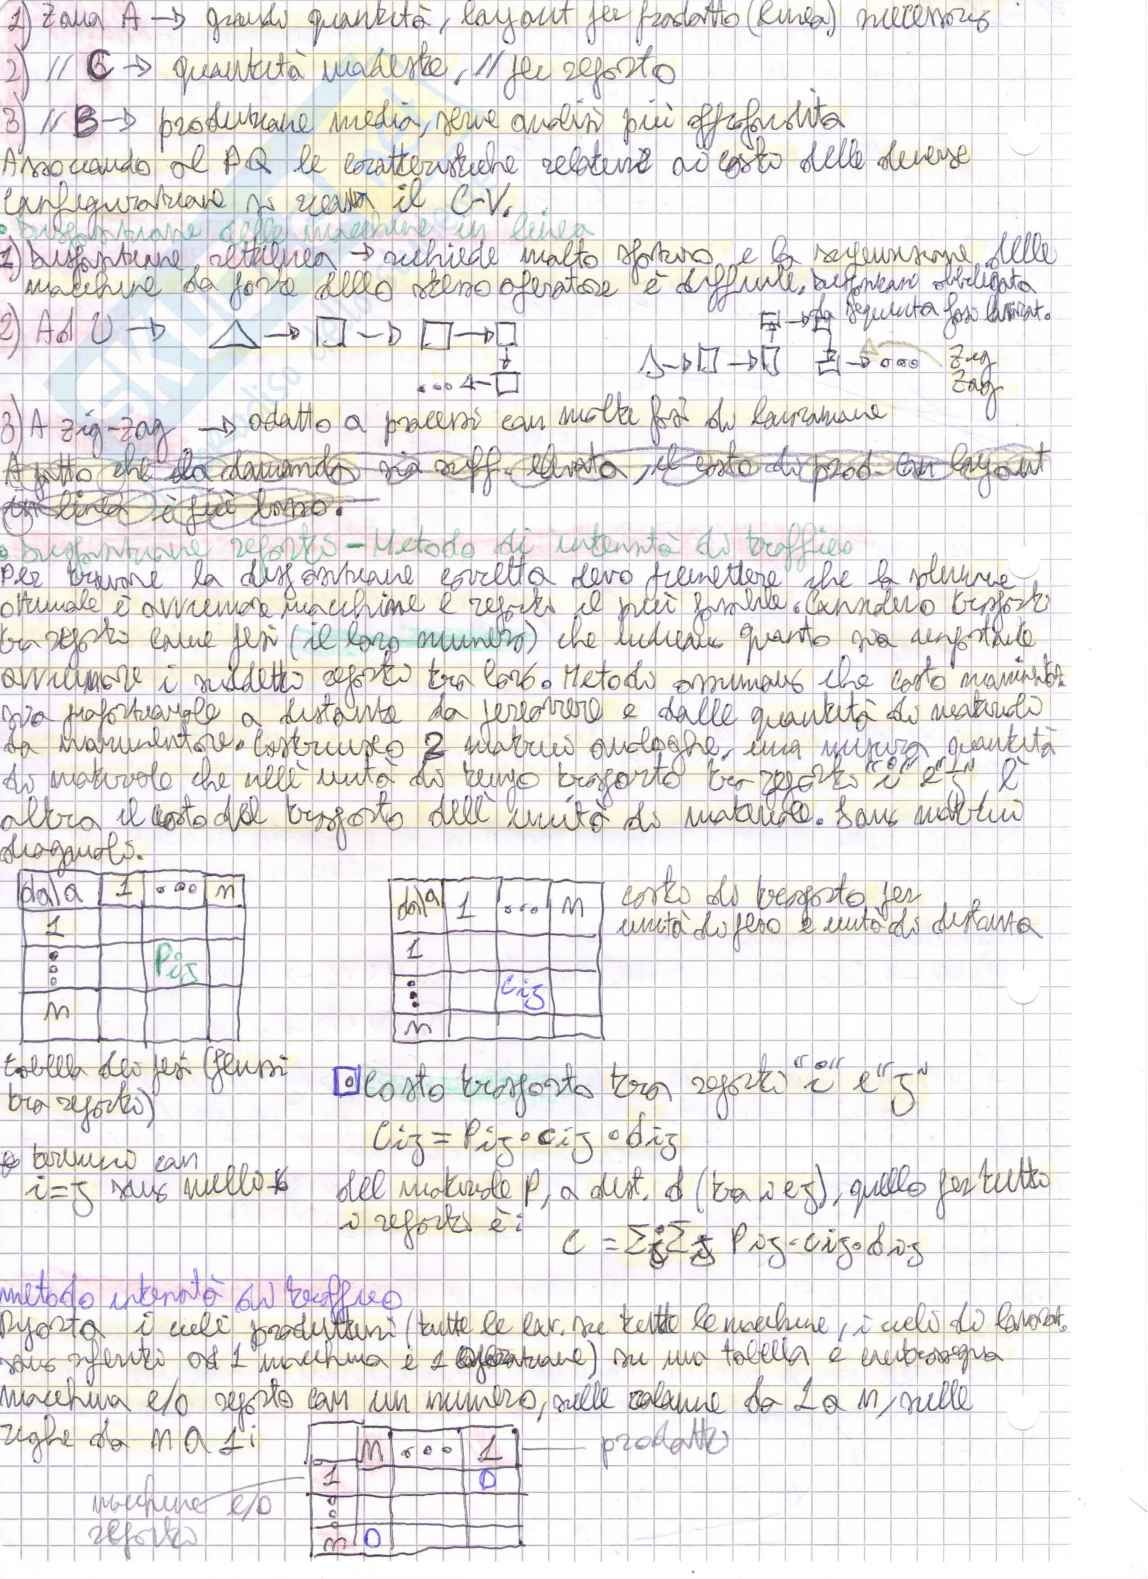 1) Zona A → grandi quantità, layout per prodotto (linea) necessario
2) // C → quantità modeste, // per reparto
3) // B → produzione media, serve analisi più approfondita
Associando al PQ le caratteristiche relative ai costo delle diverse
configurazione si ricava il C-V.
• Disposizione delle macchine in linea
1) Disposizione rettilinea → richiede molto spazio e la supervisione delle
macchine da parte dello stesso operatore è difficile, disposizione obbligata
da sequenza fasi lavoraz.
2) Ad U →
Zig
Zag
3) A zig-zag → adatto a processi con molte fasi di lavorazione
A patto che la domanda sia suff. elevata, il costo di prod. con layout
in linea è più basso.
• Disposizione reparti - Metodo di intensità di traffico
Per trovare la disposizione corretta devo premettere che la soluzione
ottimale è avvicinare macchine e reparti il più possibile. Considero trasporti
tra reparti come pesi (il loro numero) che indicano quanto sia importante
avvicinare i suddetti reparti tra loro. Metodo assumiamo che costo movimentaz.
sia proporzionale a distanze da percorrere e dalle quantità di materiale
da movimentare. Costruisco 2 matrici analoghe, una misura quantità
di materiale che nell'unità di tempo trasporto tra reparti "i" e "j" l'
altra il costo del trasporto dell'unità di materiale. Sono matrici
diagonali.
da\a 1 ... n
1
Pij
n
da\a 1 ... n
1
cij
n
costo di trasporto per
unità di peso e unità di distanza
tabella dei pesi (flussi
tra reparti)
Costo trasporto tra reparti "i" e "j"
Cij = Pij • cij • dij
termini con
i=j sono nulli
del materiale P, a dist. d (tra i e j), quello per tutti
i reparti è:
C = ΣΣ Pij · cij · dij
metodo intensità di traffico
Riporta i cicli produttivi (tutte le lav. su tutte le macchine, i cicli di lavoraz.
sono riferiti ad 1 macchina e 1 operazione) su una tabella e contrassegna
macchina e/o reparto con un numero, nelle colonne da 1 a n, nelle
righe da n a 1:
n ... 1
prodotto
1 0
n 0
macchine e/o
reparto